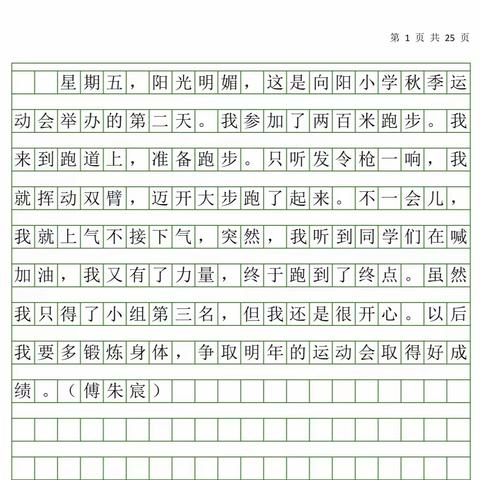 第 1 页 共 25 页
星期五，阳光明媚，这是向阳小学秋季运
动会举办的第二天。我参加了两百米跑步。我
来到跑道上，准备跑步。只听发令枪一响，我
就挥动双臂，迈开大步跑了起来。不一会儿，
我就上气不接下气，突然，我听到同学们在喊
加油，我又有了力量，终于跑到了终点。虽然
我只得了小组第三名，但我还是很开心。以后
我要多锻炼身体，争取明年的运动会取得好成
绩。（傅朱宸）